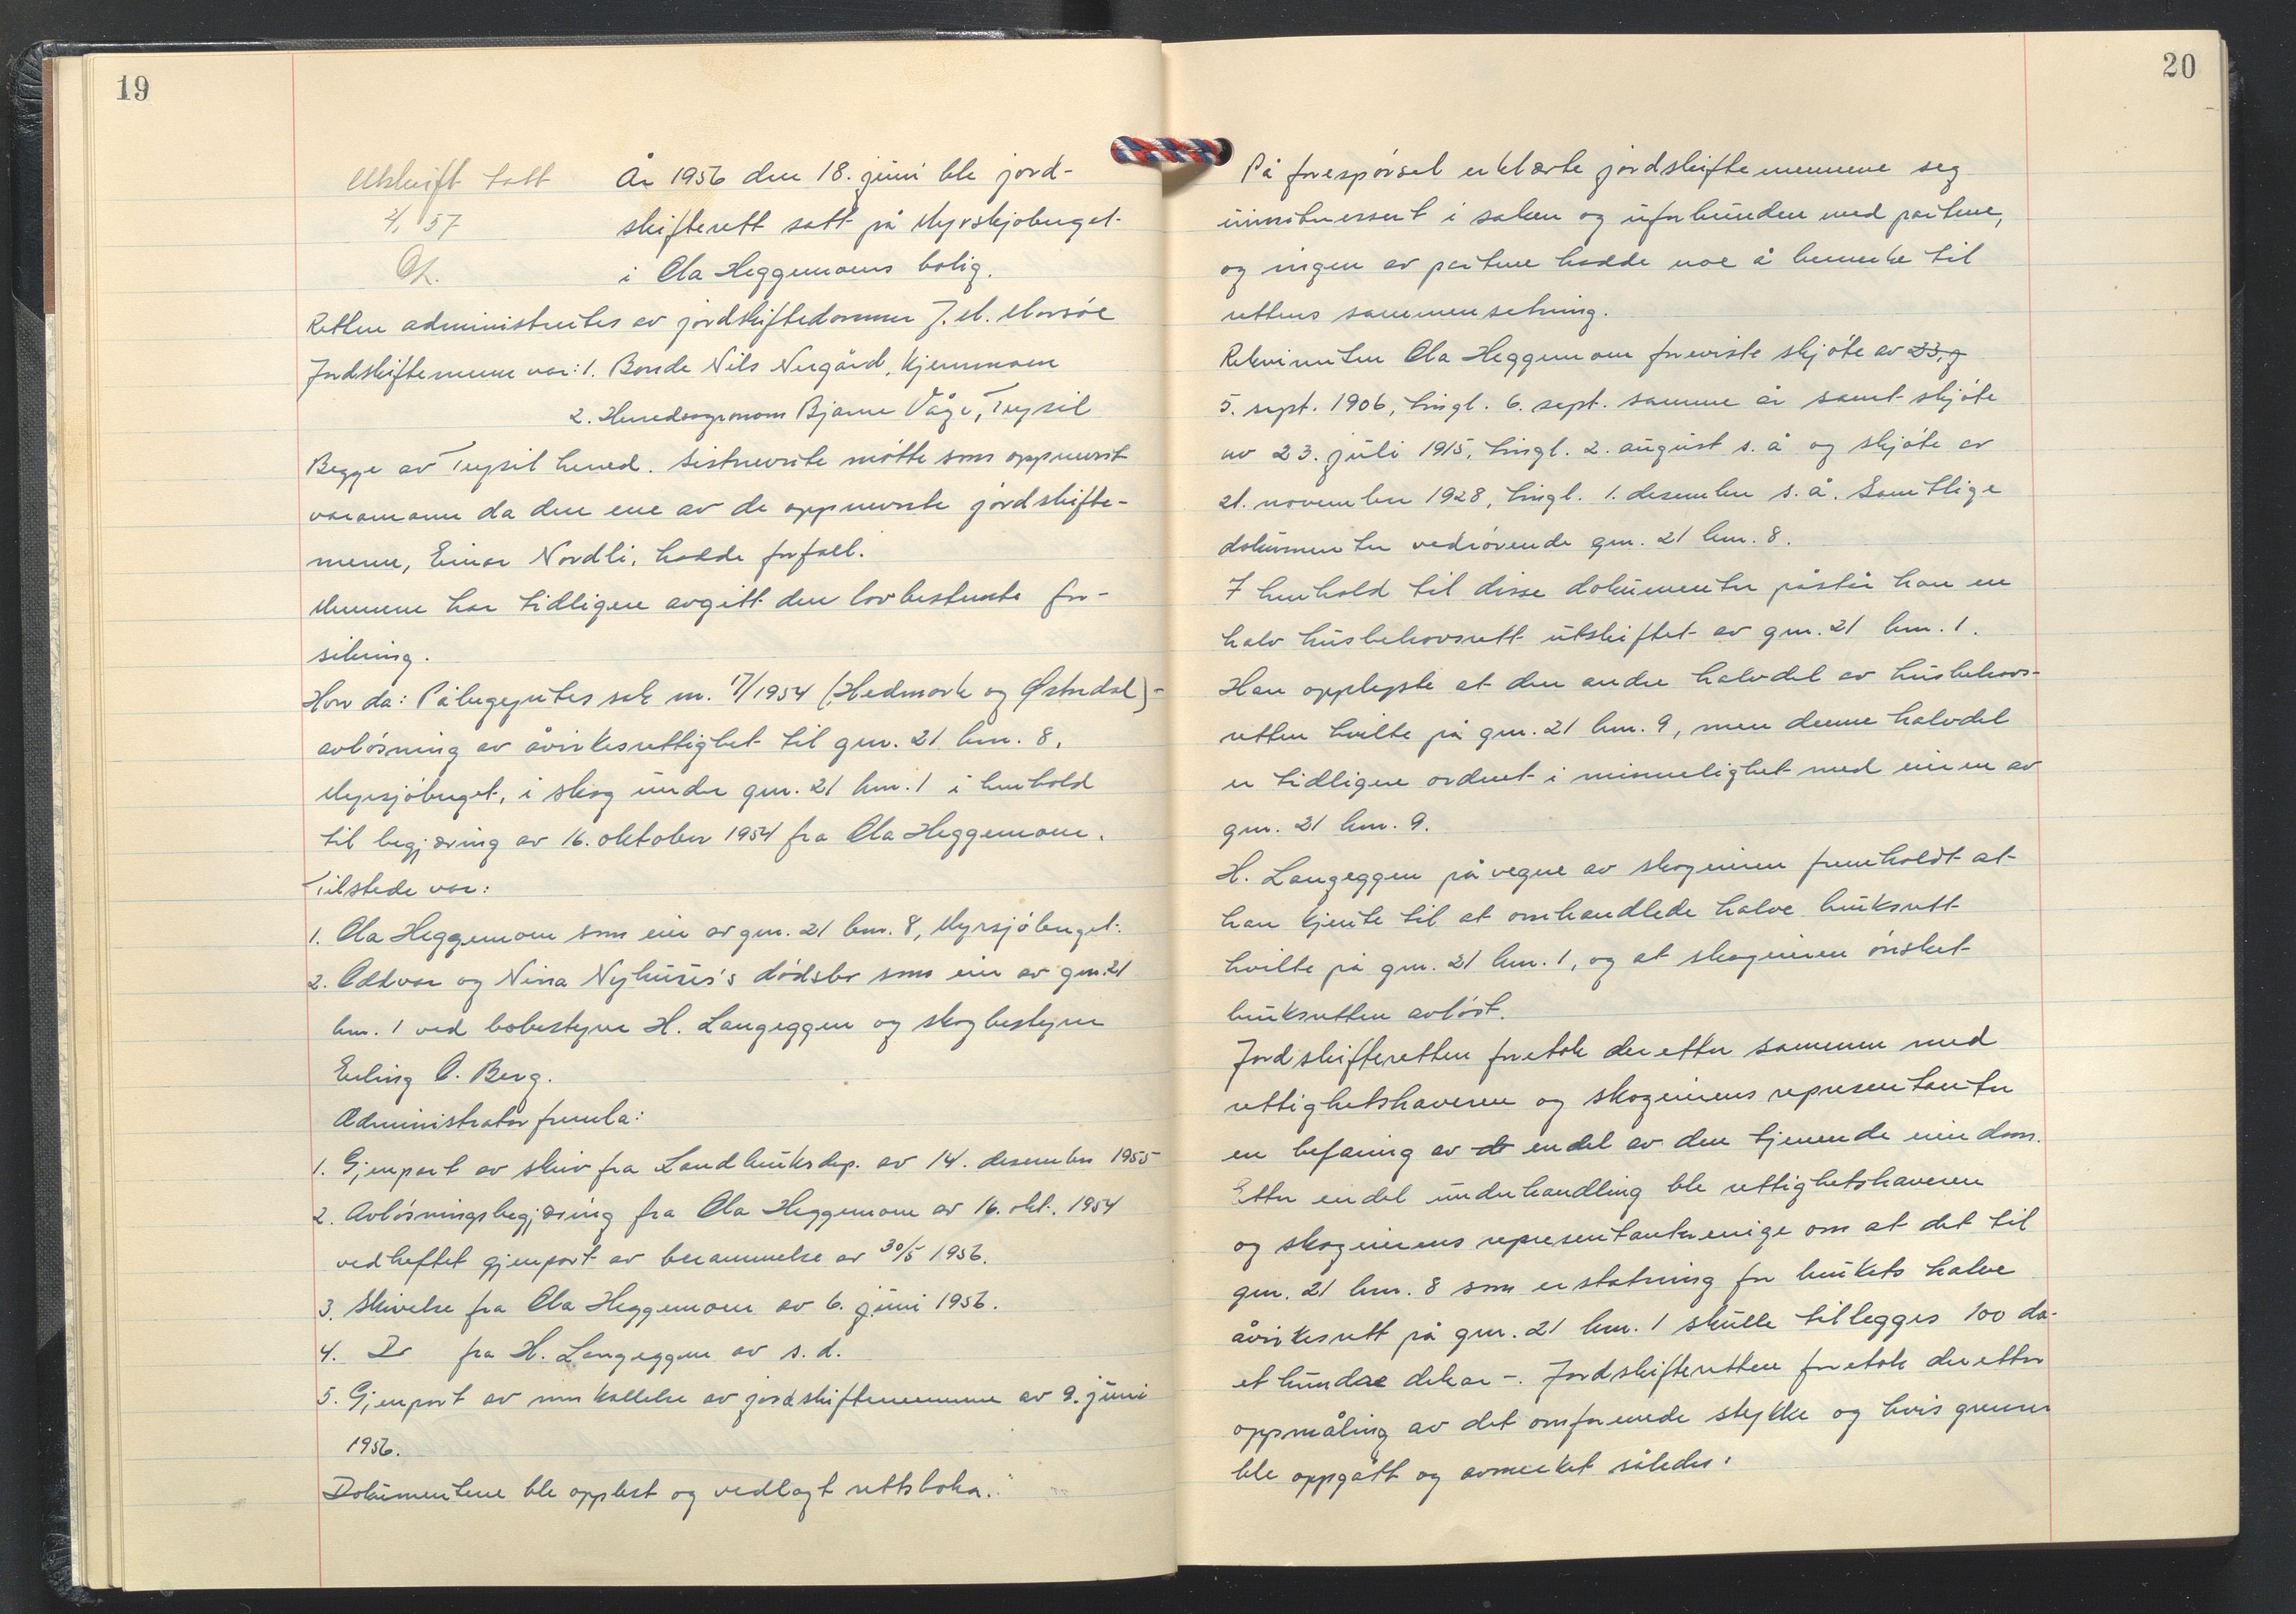 19
Utskrift tatt
År 1956 den 18. juni ble jord-
4/1 57
skifterett satt på Myrskjøberget
i Ola Heggemoens bolig.
Retten administrertes av jordskiftedommer J. M. Morsøe
Jordskiftemenn var: 1. Bonde Nils Nergård, Kjernmoen
2. Herredsagronom Bjarne Våge, Trysil
Begge av Trysil herred. Sistnevnte møtte som oppnevnt
varamann da den ene av de oppnevnte jordskifte-
menn, Einar Nordli, hadde forfall.
Mennene har tidligere avgitt den lovbestemte for-
sikring.
Hvor da: Påbegyntes sak nr. 17/1954 (Hedmark og Østerdal) -
avløsning av åvirkesrettighet til gnr. 21 bnr. 8,
Myrsjøberget, i skog under gnr. 21 bnr. 1 i henhold
til begjæring av 16. oktober 1954 fra Ola Heggemoen.
Tilstede var:
1. Ola Heggemoen som eier av gnr. 21 bnr. 8, Myrsjøberget.
2. Oddvar og Nina Nyhuus's dødsbo som eier av gnr. 21
bnr. 1 ved bobestyrer H. Langeggen og skogbestyrer
Erling O. Berg.
Administrator fremla:
1. Gjenpart av skriv fra Landbruksdep. av 14. desember 1955
2. Avløsningsbegjæring fra Ola Heggemoen av 16. okt. 1954
vedheftet gjenpart av berammelse av 30/5 1956.
3. Skrivelse fra Ola Heggemoen av 6. juni 1956.
4. Do fra H. Langeggen av s. d.
5. Gjenpart av innkallelse av jordskiftemennene av 9. juni
1956.
Dokumentene ble opplest og vedlagt rettsboka.
20
På forespørsel erklærte jordskiftemennene seg
uinteressert i saken og uforbunden med partene,
og ingen av partene hadde noe å bemerke til
rettens sammensetning.
Rekvirenten Ola Heggemoen foreviste skjøte av 23. j
5. sept. 1906, tingl. 6. sept. samme år samt skjøte
av 23. juli 1915, tingl. 2. august s. å og skjøte av
21. november 1928, tingl. 1. desember s. å. Samtlige
dokumenter vedrørende gnr. 21 bnr. 8.
I henhold til disse dokumenter påstår han en
halv husbehovsrett utskiftet av gnr. 21 bnr. 1.
Han opplyste at den andre halvdel av husbehovs-
retten hvilte på gnr. 21 bnr. 9, men denne halvdel
er tidligere ordnet i minnelighet med eieren av
gnr. 21 bnr. 9.
H. Langeggen på vegne av skogeieren fremholdt at
han kjente til at omhandlede halve bruksrett
hvilte på gnr. 21 bnr. 1, og at skogeieren ønsket
bruksretten avløst.
Jordskifteretten foretok deretter sammen med
rettighetshaveren og skogeierens representanter
en befaring av de en del av den tjenende eiendom.
Etter en del underhandling ble rettighetshaveren
og skogeierens representanter enige om at det til
gnr. 21 bnr. 8 som erstatning for brukets halve
åvirkesrett på gnr. 21 bnr. 1 skulle tillegges 100 da-
et hundre dekar -. Jordskifteretten foretok deretter
oppmåling av det omforenede stykke og hvis grenser
ble oppgått og avmerket således: